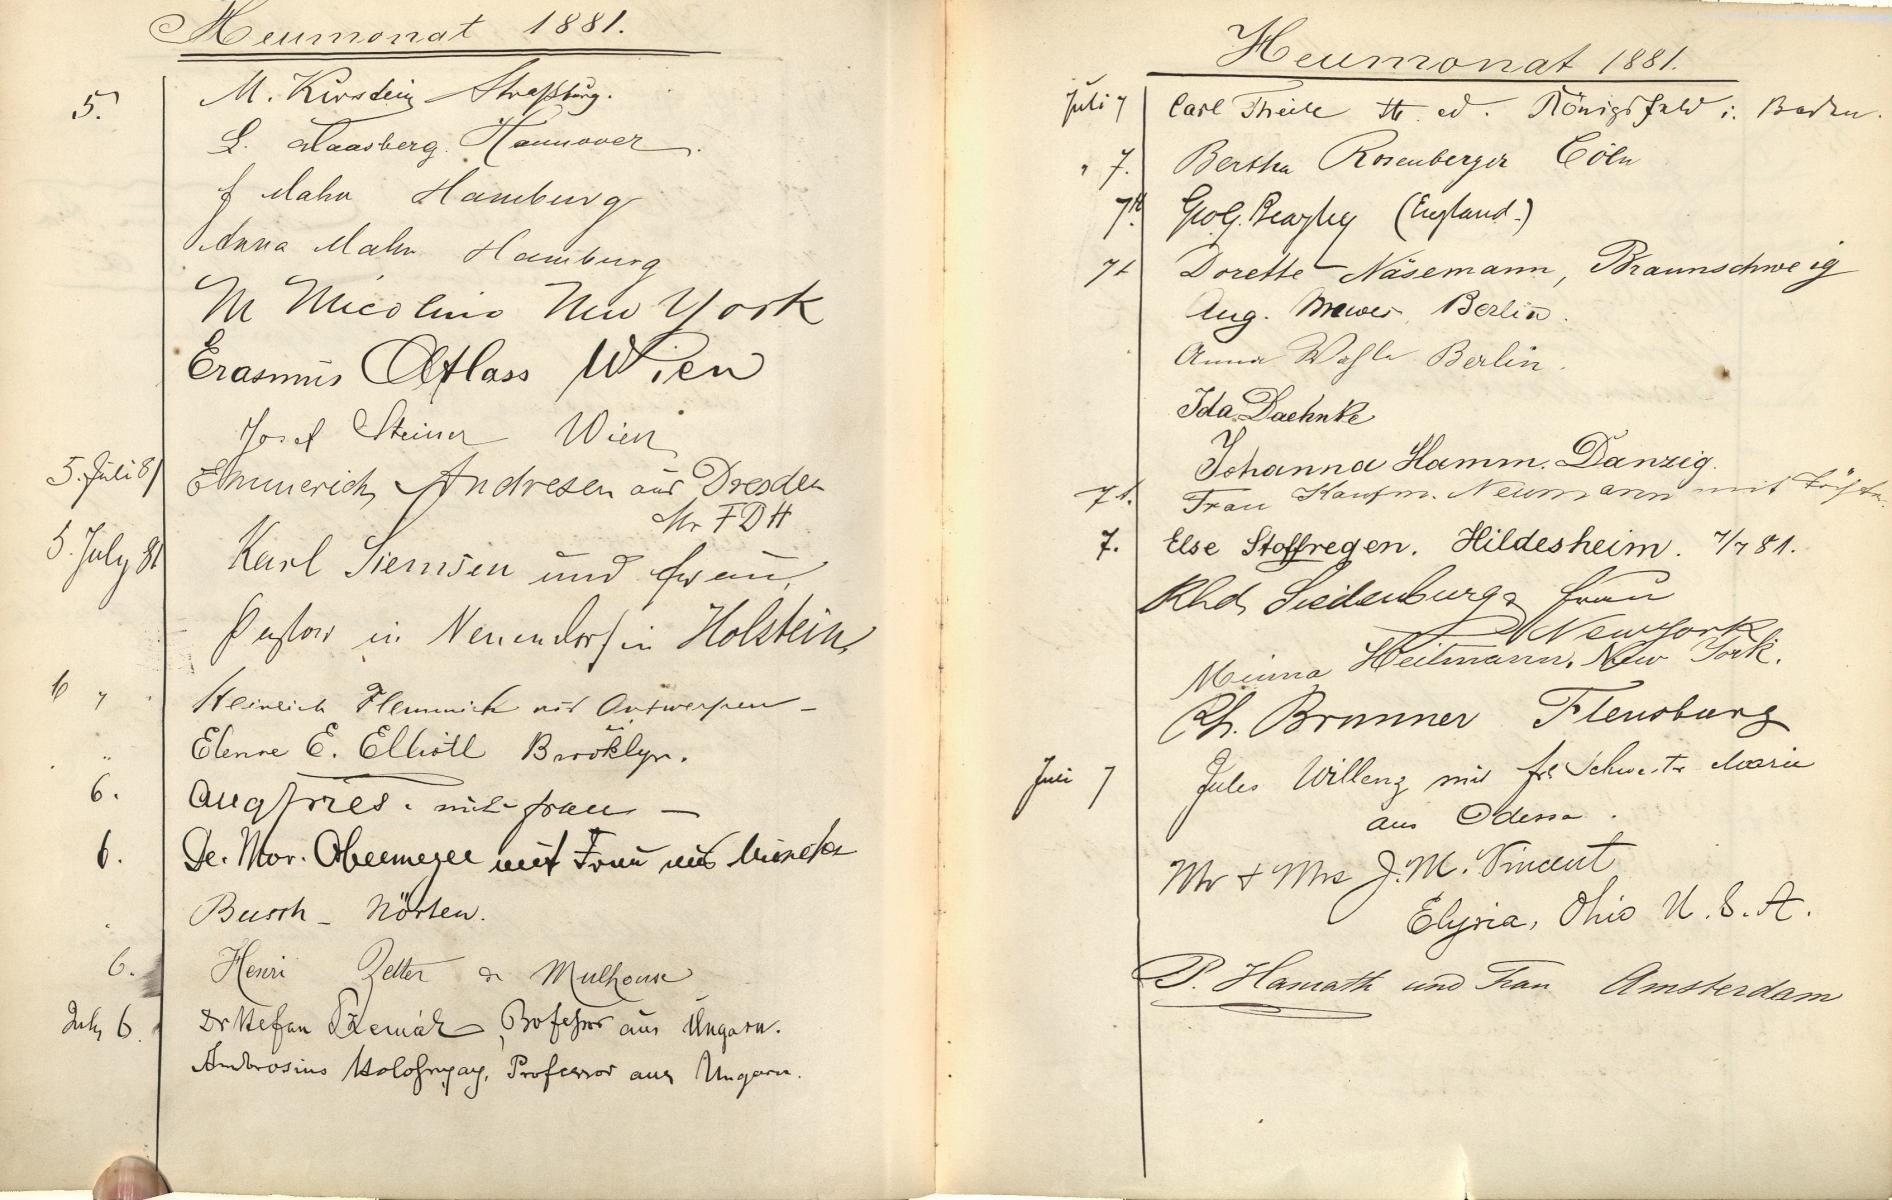 Heumonat 1881.
5. M. Kirstein Straßburg.
L. Haasberg Hannover.
f Mahn Hamburg
Anna Mahn Hamburg
M Nicolino New York
Erasmus Atlass Wien
Josef Steiner Wien
5. Juli 81 Emmerich Andresen aus Dresden
Mr F D H
5. July 81 Karl Siemsen und Frau,
Pastor in Neuendorf in Holstein,
6 " Heinrich Flemmich aus Antwerpen
" E. Elliott Brooklyn.
6. Aug Fries. mit Frau
6. Dr. Mor. Obermeyer mit Frau aus München
Busch - Nörten.
6. Henri Zetter de Mulhouse
July 6. Dr Stefan Professor aus Ungarn.
Ambrosius Professor aus Ungarn.
Heumonat 1881.
Juli 7 Carl Theile Königsfeld i. Baden.
" 7. Bertha Rosenberger Cöln
7th. Geo. G. (England.)
7t Dorette Näsemann, Braunschweig
Aug. Mewes Berlin.
Anna Berlin.
Ida Daehnke
Johanna Hamm. Danzig.
7t. Frau Kaufm. Neumann mit
7. Else Stoffregen. Hildesheim. 7/7 81.
Rhd. Siedenburg & Frau
New York
Minna Heitmann. New York.
Ch. Brunner Flensburg
Juli 7 Jules Willenz mit Schwester Marie
aus Odessa.
Mr & Mrs J. M. Vincent
Elyria, Ohio U. S. A.
P. Hamath und Frau Amsterdam